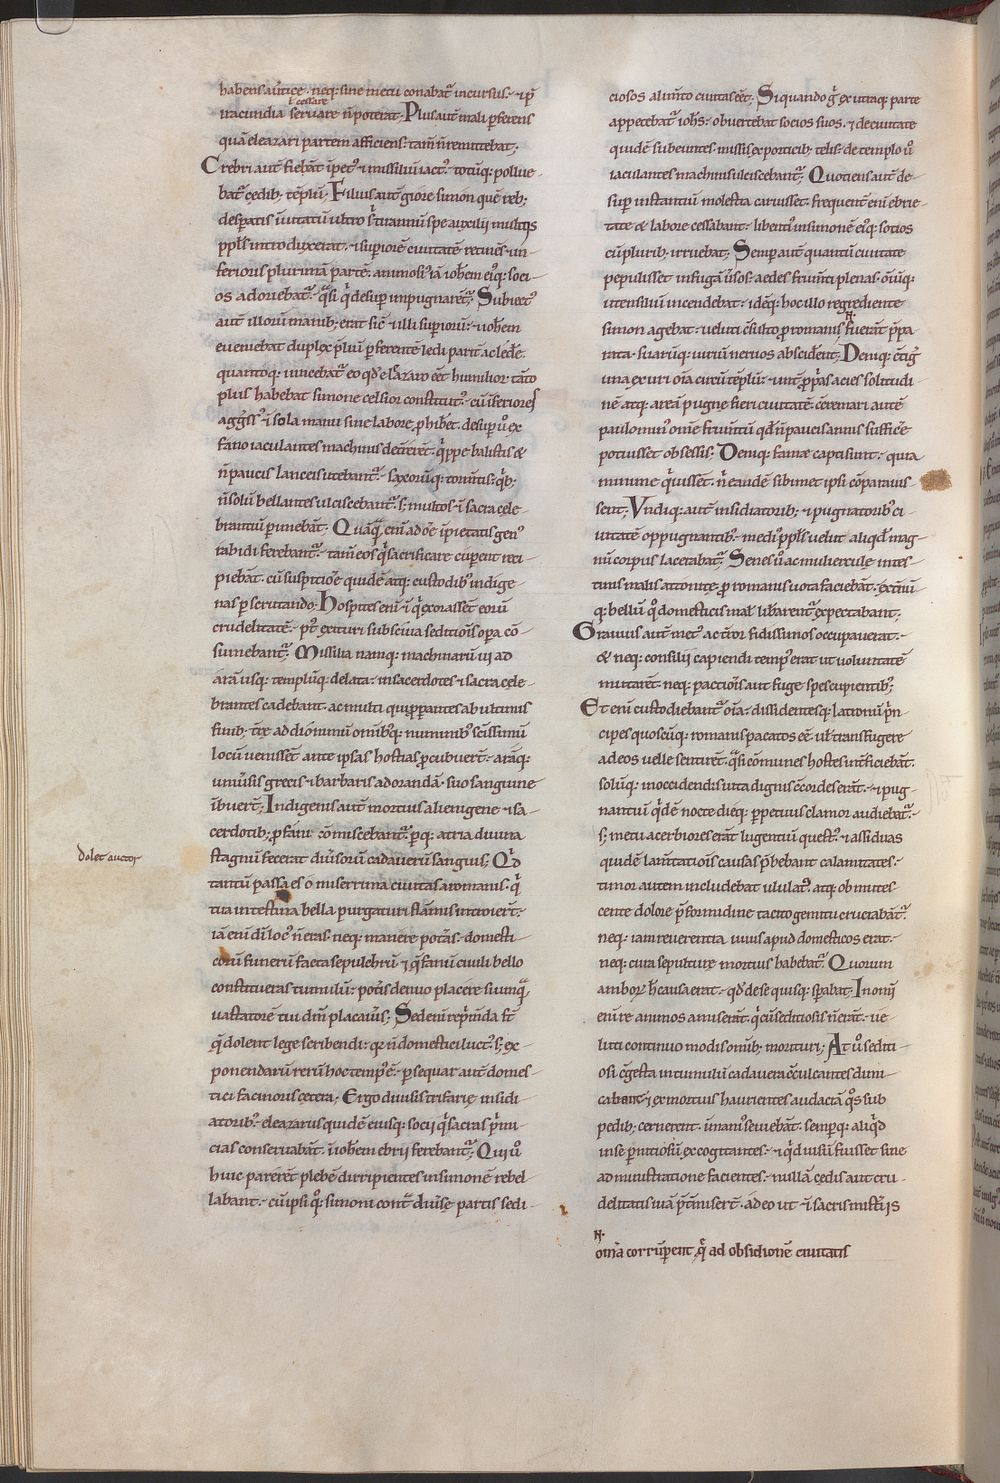 habens a uertice · neq; sine metu conabat᷑ incursus · ⁊ iꝑ
ł cessare
iracundia seruare ñ poterat · Plus aut̄ mali ꝑferens
quā eleazari partem afficiens · tam̄ ñ remittebat;
Crebri aut̄ fiebāt īpet᷒ ⁊ missiliū iact᷒ · totūq; pollue
bat᷑ cędib; tēplū; Filius aut̄ giore simon quē reb;
desperatis inuitatū ultro s͛ tirannū spe auxilii multis
ppl̄s introduxerat · ⁊ superiorē ciuitatē retinēs ⁊ in
ferioris plurimā partē · animosi᷒ iā ioh̄em ei᷒q; soci
os adoriebat᷑ · q̄si q͛ desup impugnaret᷑; Subiect᷒
aut̄ illorū manib; erat sic̄ ⁊ illi superiorū · ⁊ ioh̄em
eueniebat duplex p̄liū ꝑferentē ledi parit̄ ac ledēs ·
quantoq; uincebat᷑ eo qd̓ eleazaro eēt humilior · tāto
plus habebat simone celsior constitut᷒ · cū īferiores
aggr̄ss᷒ ⁊ sola manu sine labore ꝓhib̄et · desup u̓o ex
fano iaculantes machinis det̄reret · q͛ppe balistis &
ñ paucis lanceis utebant᷑ · saxorūq; torm̄tis · q͛b;
ñ solū bellantes ulciscebant᷑ · s; multos ⁊ ī sacra cele
brantiū perimebāt · Quāq̄ eni ad oē īpietatis gen᷒
rabidi ferebant᷑ · tam̄ eos q͛ sacrificare cuperent reci
piebāt · cū suspitiōe quidē atq; custodib᷒ indige
nas perscrutando · hospites eni ⁊ q͛ exorassēt eorū
crudelitatē · pt᷒ exituri subsciua seditiōis opa cō
sumebant᷑; Missilia namq; machinarū ui ad
arā usq; templūq; delata · in sacerdotes ⁊ sacra cele
brantes cadebant · ac multi qui pperantes ab ultimis
finib; t̄rę ad diuinū omīb᷒q; numinib᷒ scīssimū
locū uenissēt ante ipsas hostias ꝓcubuerēt · arāq;
uniūsis grecis ⁊ barbaris adorandā · suo sanguine
ībuerēt; Indigenis aut̄ mortuis alienigene ⁊ sa
cerdotib; ꝓfani cōmiscebant᷑ · perq; atria diuina
stagnū fecerat diūsorū cadauerū sanguis; Qd̓
dolet auctor
tantū passa es o miserrima ciuitas a romanis · q͛
tua intestina bella purgaturi flāmis introierēt ·
iā eni dī loc᷒ ñ eras · neq; manere potās · domesti
corū funerū facta sepulchrū ⁊ q̄ fanū ciuili bello
constitueras tumulū · potis denuo placere si umq̄
uastatorē tui dm̄ placauīs; Sed eni repͥm̄da st̄
q̄ dolent lege scribendi · q̄r ñ domestici luct᷒ · s; ex
ponendarū rerū hoc temp᷒ ē · persequar aut̄ domes
tici facinoris cetera; Ergo diuisis trifarię insidi
atorib᷒ · eleazarus quidē eiusq; socii q͛ sacras pͥmi
cias conseruabāt · ī ioh̄em ebrii ferebant᷑; Qui u̓o
huic parerēt plebē diripientes in simonē rebel
labant · cū ipsi q᷒; simoni cont᷑ diūse partis sedi
ciosos alim̄to ciuitas eēt; Si quando ḡ ex utraq; parte
appetebat᷑ ioh̄s · obuertebat socios suos · ⁊ de ciuitate
quidē subeuntes · missis ex porticib; telis · de templo u̓o
iaculantes machinis ulciscebant᷑; Quotiens aut̄ de
sup instantiū molestia caruisset · frequent̄ eni ebrie
tate & labore cessabant · libenti᷒ in simonē ei᷒q; sotios
cū plurib; irruebat; Semper aut̄ quantū ciuitate
pepulisset in fugā ūsos · aedes frum̄ti plenas · om̄iūq;
utensiliū incendebat · ⁊ idēq; hoc illo regrediente
simon agebat · ueluti c̄sulto ꝓ romanis fuerāt p̄pa
rata · suarūq; uiriū neruos abscidēt; Deniq; c̄tig᷒
una exuri oīa circū tēplū · ⁊ int̄ ꝓp̄as acies solitudi
nē atq; areā pugne fieri ciuitatē · c̄cremari autē
paulomin᷒ om̄e frum̄tū qd̓ ñ paucis annis sufficē
potuisset obsessis; Deniq; famē capti sunt · quia
minime q͛uissēt · ñ eandē sibimet ipsi cōparauis
sent; Vndiq; aut̄ insidiatorib; ⁊ pugnatorib᷒ ci
uitatē oppugnantib᷒ · medi᷒ ppl̄s uelut aliqd̓ mag
nū corpus lacerabat᷑; Senes u̓o ac muliercule intes
tinis malis attonitę ꝓ romanis uota faciebāt · extnū
q; bellū q᷒ domesticis mal̄ libarent᷑ expectabant;
Grauis aut̄ met᷒ ac t̄ror fidissimos occupauerat ·
& neq; consilii capiendi temp᷒ erat ut uoluntatē
mutarēt · neq; pacciōis aut fuge spes cupientib᷒;
Et eni custodiebant᷑ oīa · dissidentesq; latronū pͥn
cipes quoscūq; romanis pacatos eē · ut transfugere
ad eos uelle sentirēt · q̄si cōmunes hostes int̄ficiebāt ·
solūq; in occidendis uita dignis c̄cordes erāt · ⁊ pug
nantiū q͛dē nocte dieq; perpetuus clamor audiebat᷑ ·
s; metu acerbiores erāt lugentiū quest᷒ · ⁊ assiduas
quidē lam̄tatiōis causas p̄bebant calamitates ·
timor autem includebat ululat᷒ · atq; obmutes
cente dolore p̄ formidine tacito gemitu cruciabāt᷑ ·
neq; iam reuerentia uiuis apud domesticos erat ·
neq; cura sepulturę mortuis habebat᷑; Quorum
amboꝝ h̄ causa erat · qd̓ de se quisq; sperabat; In om̄i
eni re animos amiserāt · q͛cū seditiosis ñ erāt · ue
luti continuo modis omīb; morituri; At u̓o sediti
osi c̄gesta in tumulū cadauera c̄culcantes dimi
cabant · ⁊ ex mortuis haurientes audaciā q᷒s sub
pedib; cernerent · inmani᷒ seuiebāt · semperq; aliqd̓
in se ꝑnitiosū excogitantes · ⁊ q͛d uisū fuisset sine
administratione facientes · nullā cędis aut cru
delitatis uiā p̄t̄miserēt · adeo ut ⁊ ī sacris misteriis
omīa corrūperent q͛ ad obsidionē ciuitatis